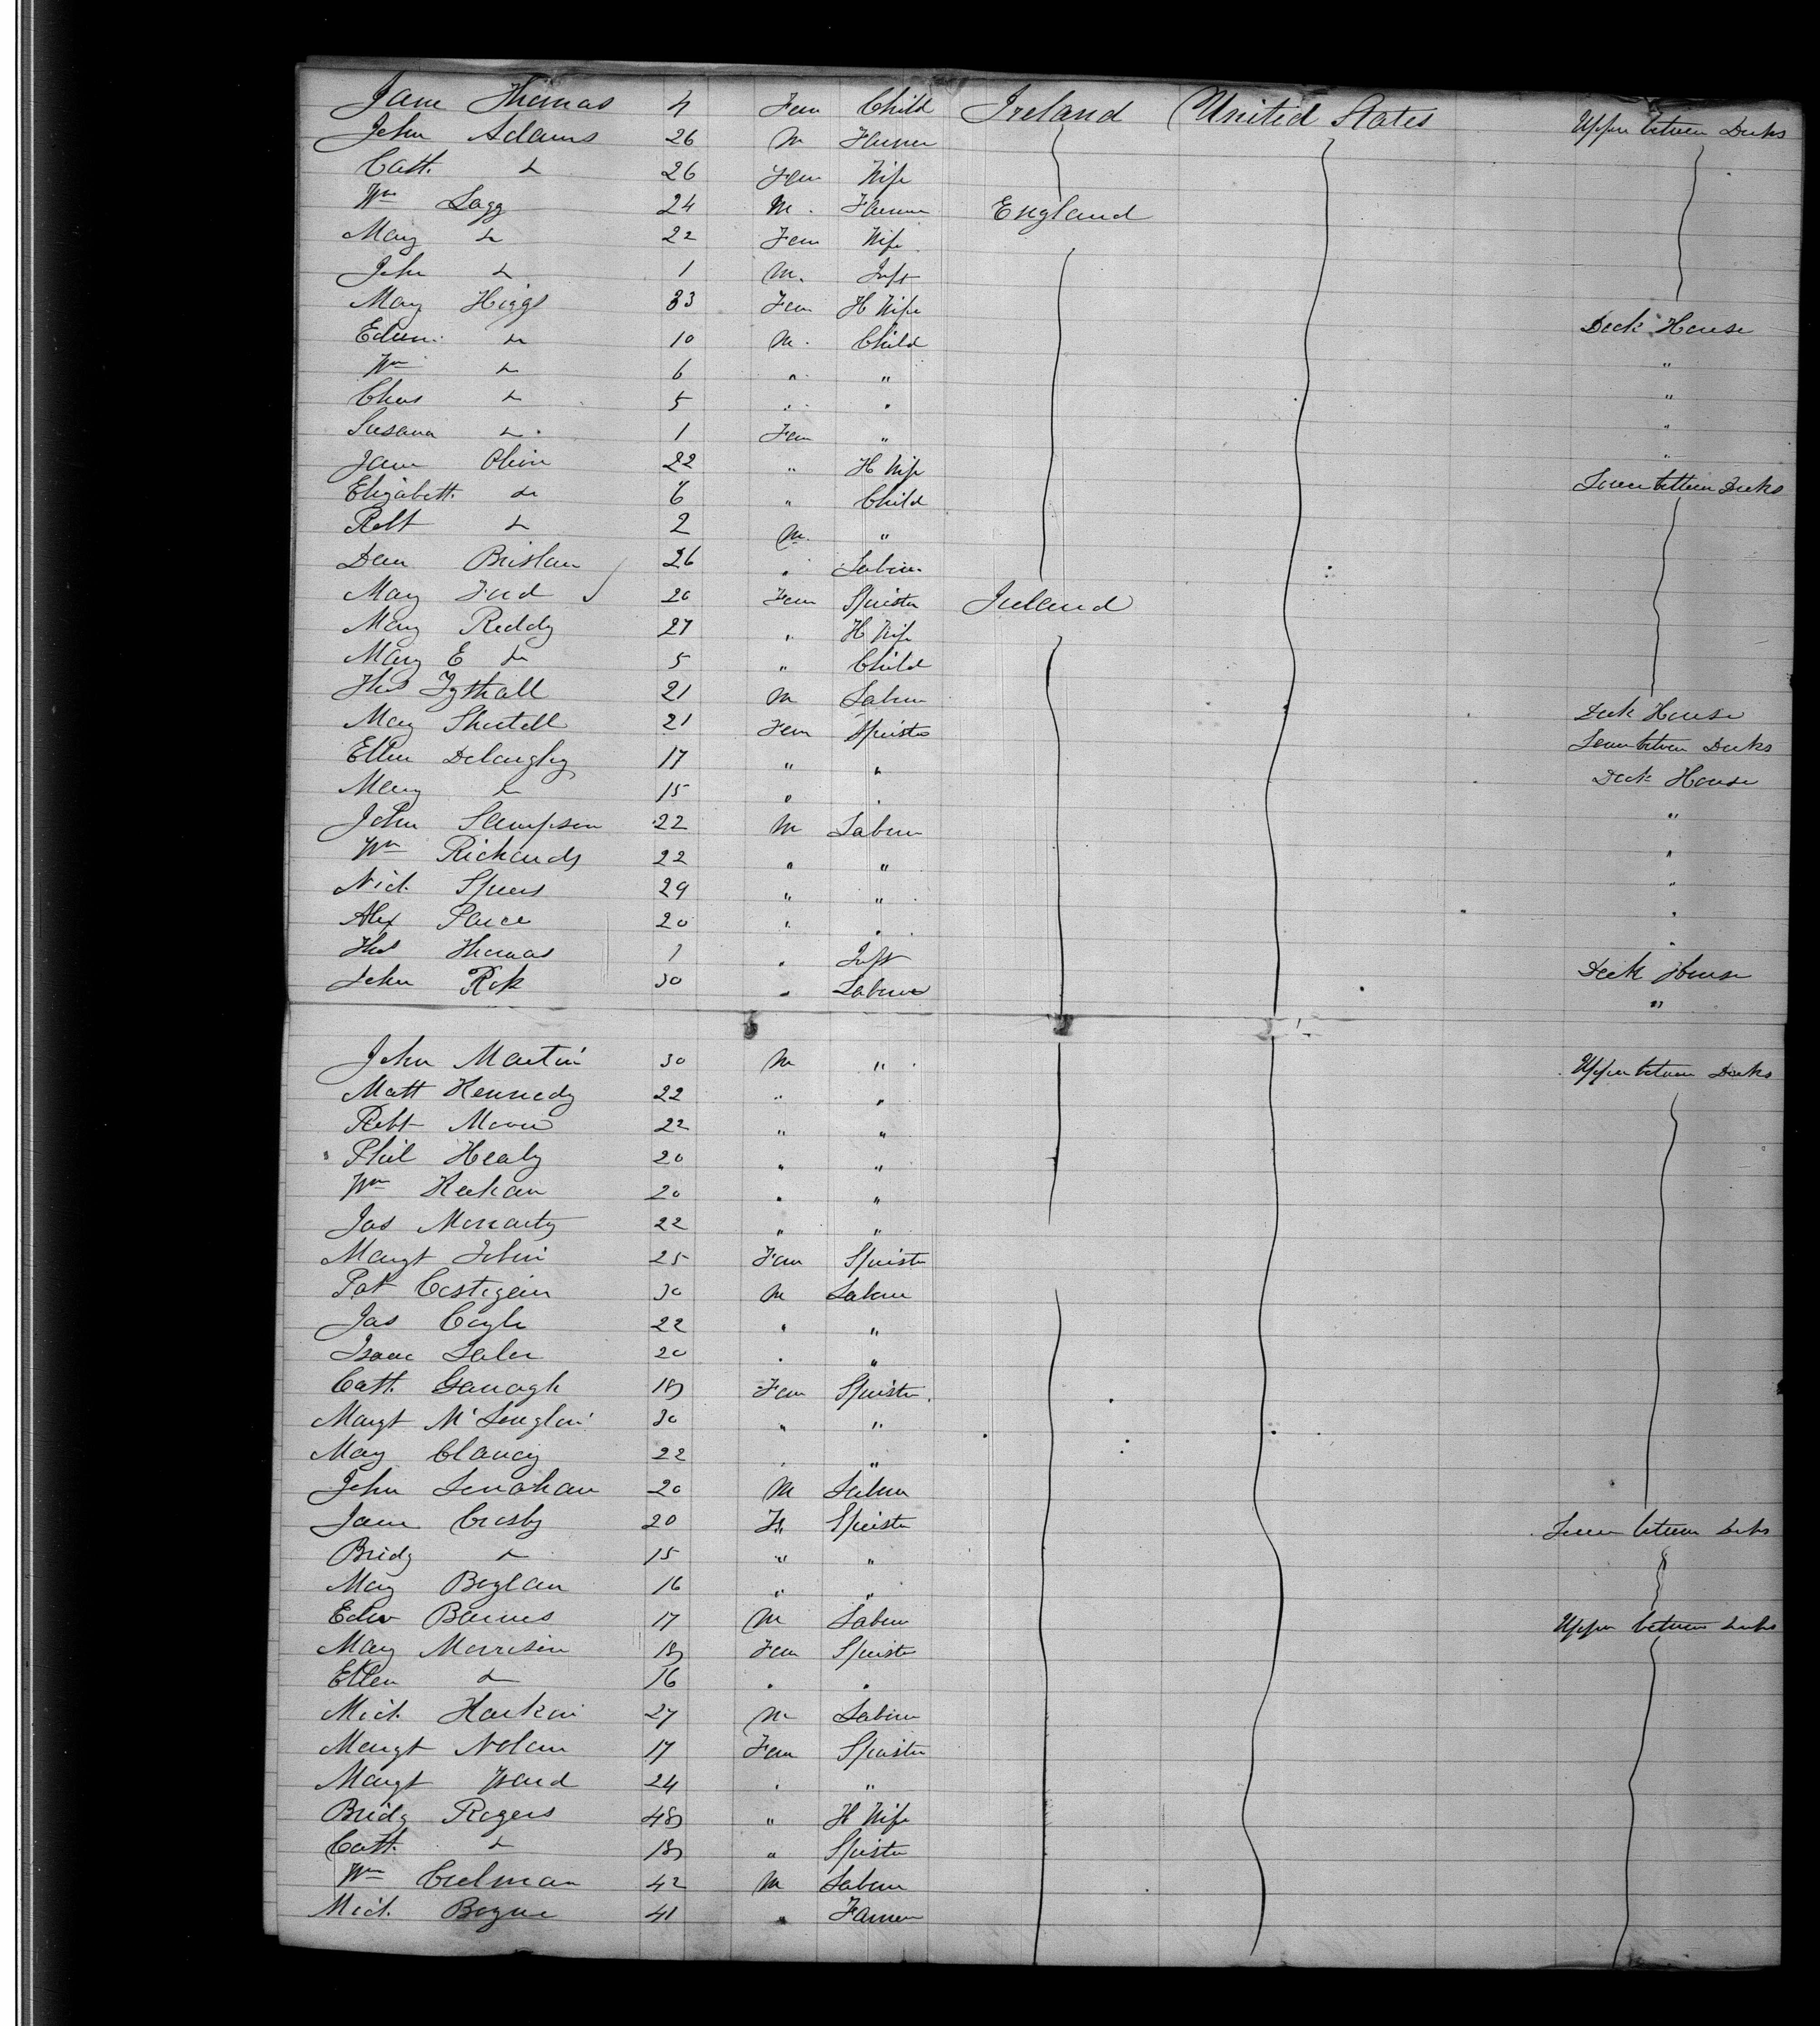 Jane Thomas 4 Fem Child Ireland United States Upper between Decks
John Adams 26 M Farmer
Cath. do 26 Fem Wife
Wm Lagg 24 M. Farmer England
Mary do 22 Fem Wife
John do 1 M. Inft
Mary Higgs 33 Fem H Wife Deck House
Edwn. do 10 M. Child "
Wm do 6 " " "
Chas do 5 " " "
Susana do 1 Fem " "
Jane Olivir 22 " H Wife Lower between Decks
Elizabeth do 6 " Child
Robt do 2 M. "
Dan Brislan 26 " Labour
Mary Ford 20 Fem Spinster Ireland
Mary Reddy 27 " H Wife
Mary E do 5 " Child
Thos Tythall 21 M Labour Deck House
Mary Shortell 21 Fem Spinster Lower between Decks
Ellen Delaughy 17 " " Deck House
Mary do 15 " " "
John Sampson 22 M Labour "
Wm Richards 22 " " "
Nich. Speers 29 " " "
Alex Parce 20 " " "
Thos Thomas 1 " Inft Deck House
John Rok 30 " Labour "
John Martin 30 M " Upper between Decks
Matt Kennedy 22 " "
Robt Moore 22 " "
Phil Healy 20 " "
Wm Keehan 20 " "
Jas Moriarty 22 " "
Margt Tobin 25 Fem Spinster
Pat Costigain 30 M Labour
Jas Coyle 22 " "
Isaac Laler 20 " "
Cath. Ganagh 18 Fem Spinster
Margt McLenglin 30 " "
Mary Clancy 22 " "
John Lenahan 20 M Labour
Jane Crosby 20 Fe Spinster Lower between Decks
Bridg do 15 " "
Mary Boylan 16 " "
Edw Barnes 17 M Labour Upper between Decks
Mary Morrisin 18 Fem Spinster
Ellen do 16 " "
Mich. Harkin 27 M Labour
Margt Nolan 17 Fem Spinster
Margt Ward 24 " "
Bridg Rogers 48 " H Wife
Cath. do 18 " Spinster
Wm Colman 42 M Labour
Mich. Bogue 41 " Farmer